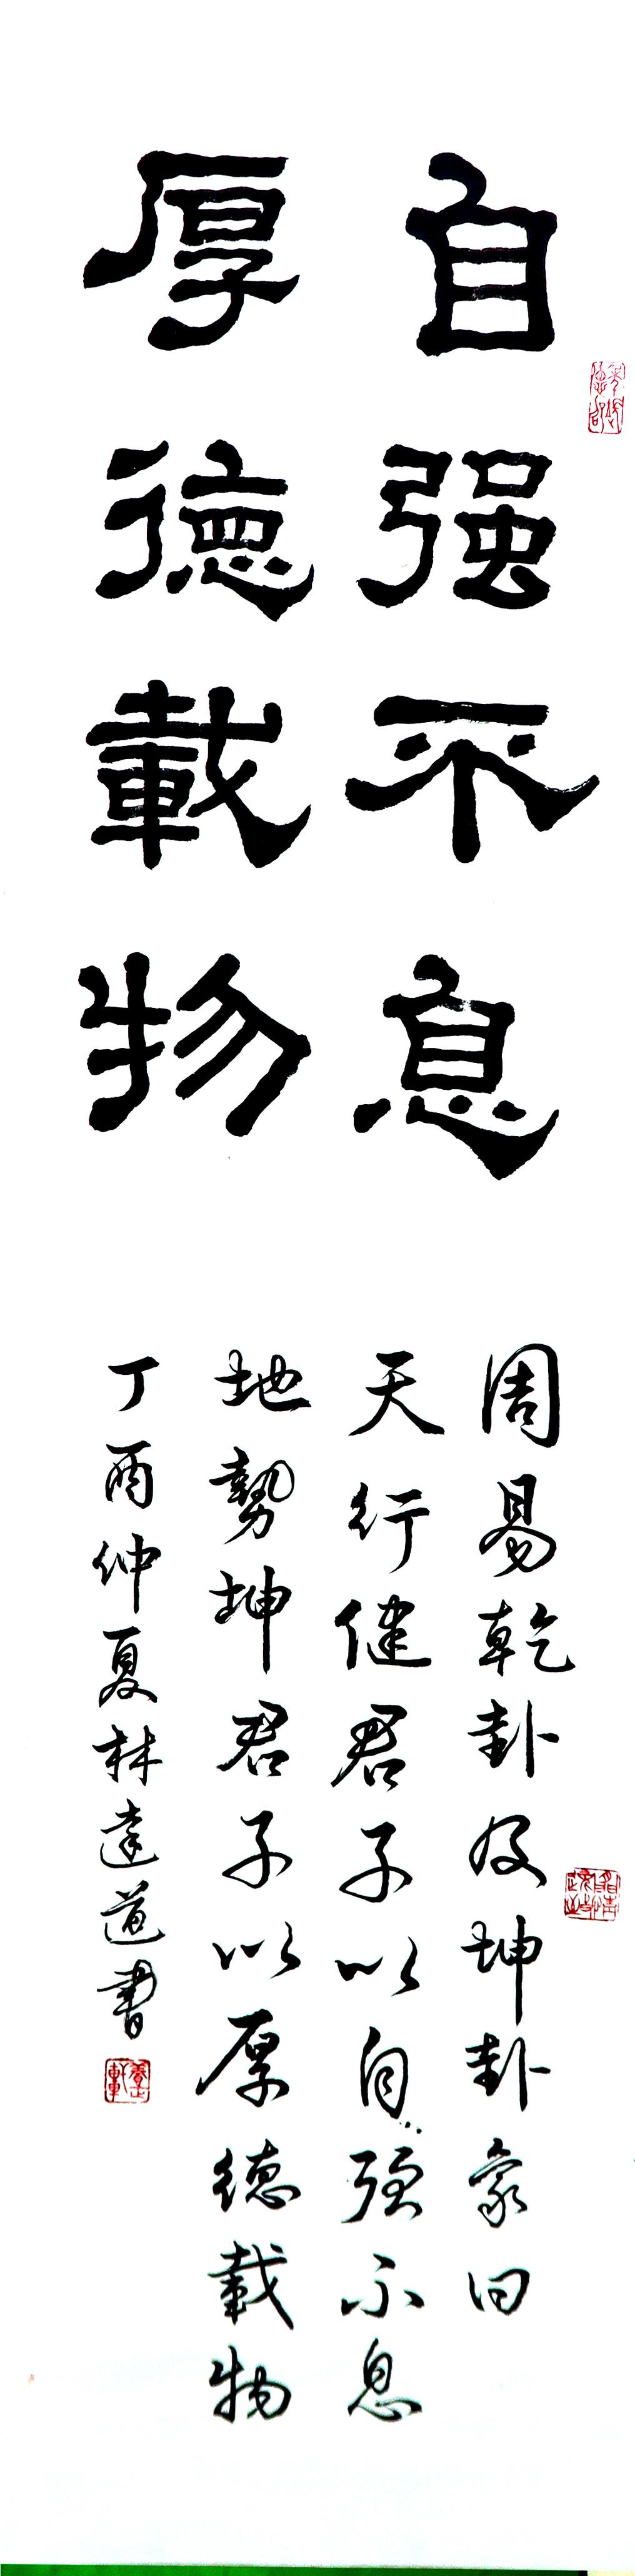 自强不息
厚德載物
周易乾卦及坤卦象曰
天行健君子以自强不息
地勢坤君子以厚德載物
丁酉仲夏林達道書